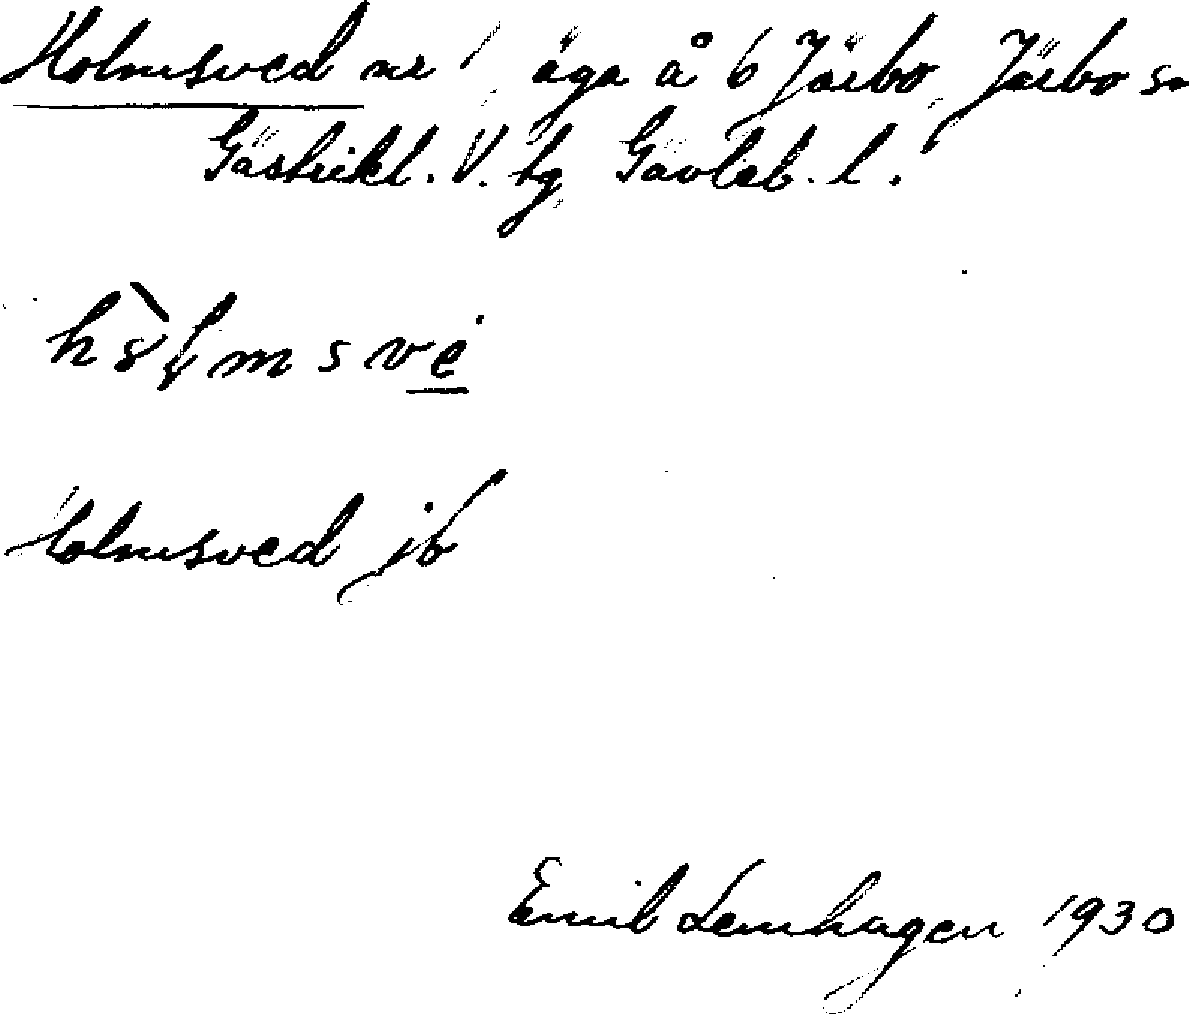 Holmsved nr 1 äga å 6 Järbo, Järbo sn
Gästrikl. V. tg Gävleb. l.
Holmsved jb
Emil Lenhagen 1930